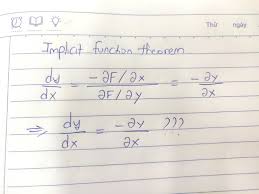 Thứ ngày
Implicit function theorem
dy/dx = -∂F/∂x / ∂F/∂y = -∂y/∂x
⇒ dy/dx = -∂y/∂x ???